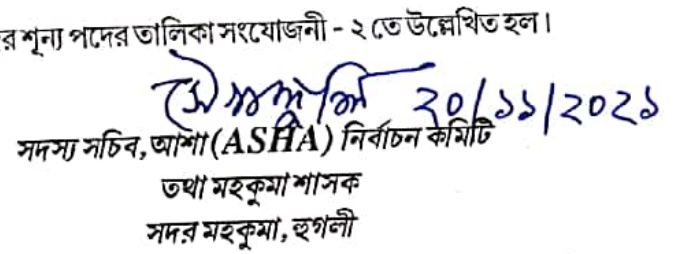 র শূন্য পদের তালিকা সংযোজনী - ২ তে উল্লেখিত হল।
২০/১১/২০২১
সদস্য সচিব, আশা (ASHA) নির্বাচন কমিটি
তথা মহকুমা শাসক
সদর মহকুমা, হুগলী